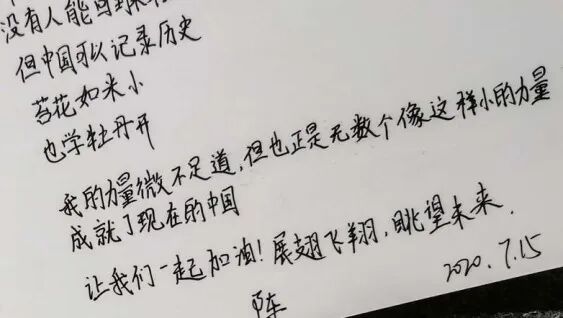 没有人能回到
但中国可以记录历史
苔花如米小
也学牡丹开
我的力量微不足道，但也正是无数个像这样小的力量
成就了现在的中国
让我们一起加油！展翅飞翔，眺望未来．
2020．7．15
陈